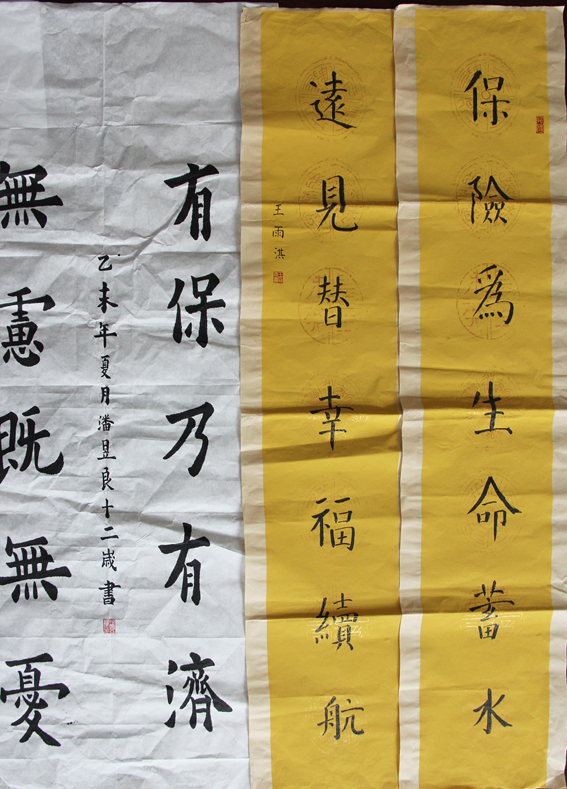 保險為生命蓄水
遠見替幸福續航
王雨淇
有保乃有濟
乙未年夏月潘昱良十二歲書
無慮既無憂